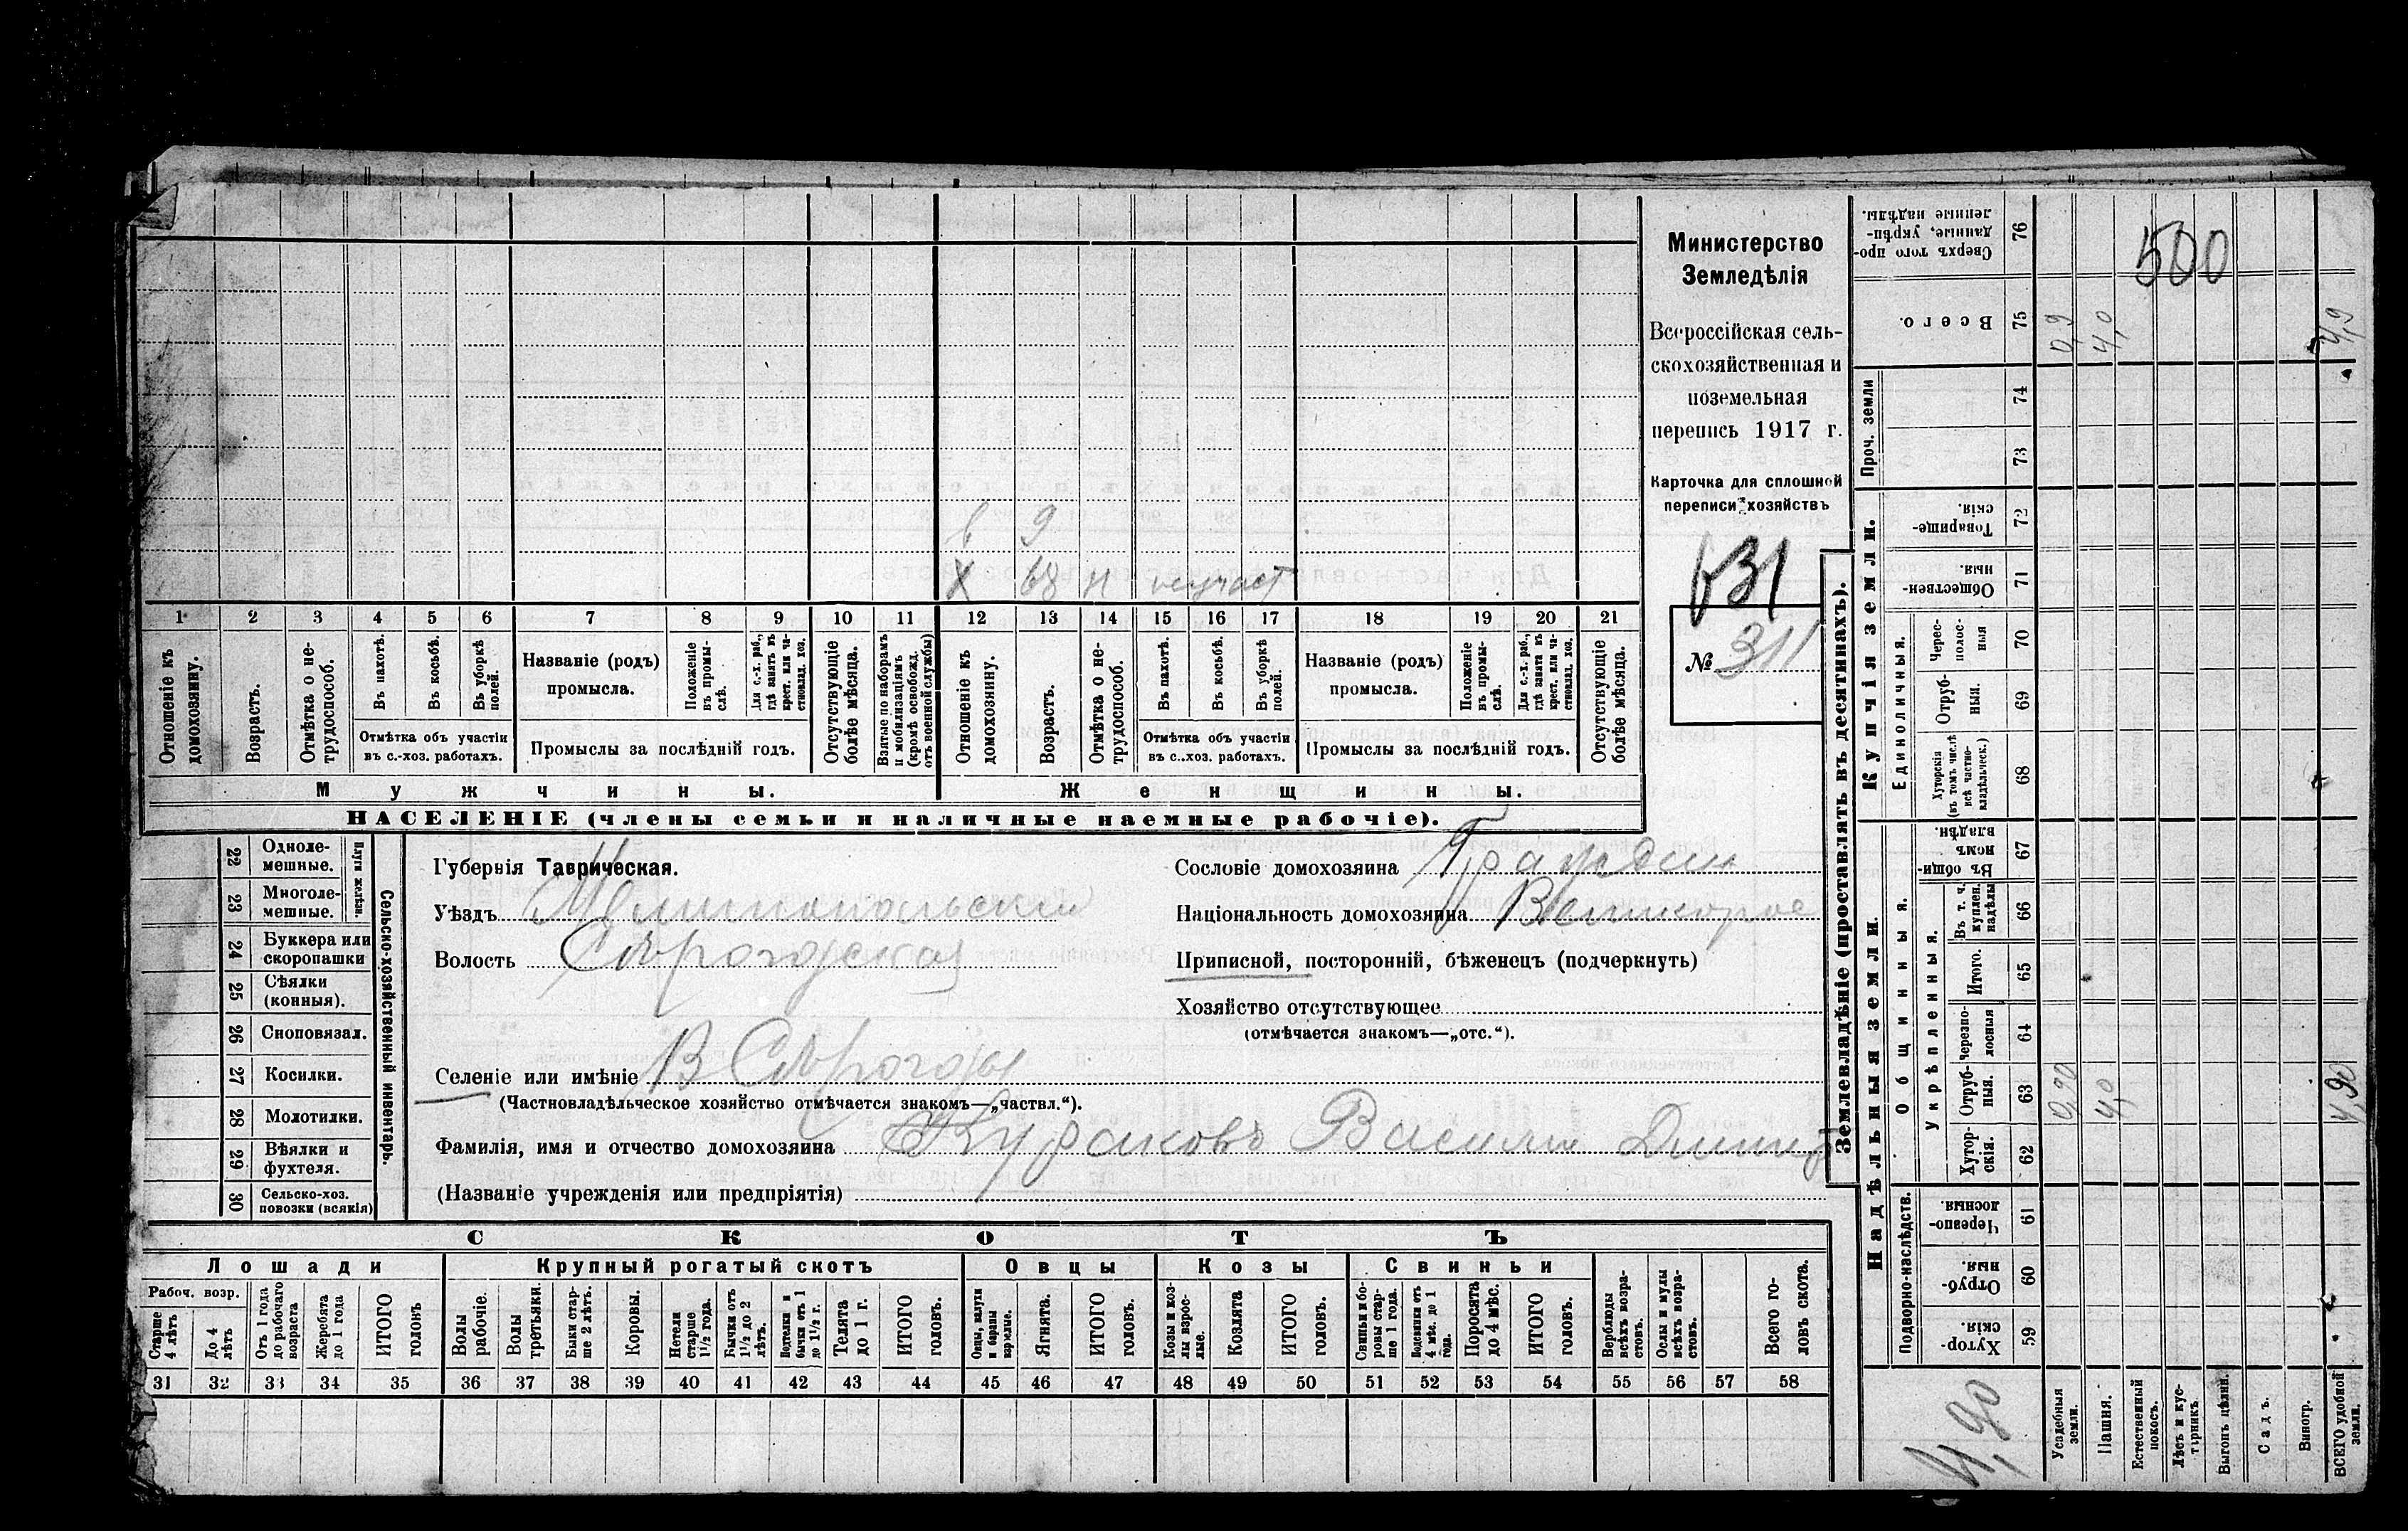 Министерство
Земледѣлія
Всероссійская сель-
скохозяйственная и
поземельная
перепись 1917 г.
Карточка для сплошной
переписи хозяйствъ
631
№ 311
в 9
Х 68 н неучаст
1 2 3 4 5 6 7 8 9 10 11 12 13 14 15 16 17 18 19 20 21
Отношеніе къ домохозяину.
Возрастъ.
Отмѣтка о не-трудоспособ.
Въ пахотѣ.
Въ косьбѣ.
Въ уборкѣ полей.
Отмѣтка объ участіи въ с.-хоз. работахъ.
Названіе (родъ) промысла.
Положеніе въ промы-слѣ.
Для с.-х. раб., гдѣ занятъ въ крест. или ча-стновлад. хоз.
Промыслы за послѣдній годъ.
Отсутствующіе болѣе мѣсяца.
Взятые по наборамъ и мобилизаціямъ (кромѣ освобожд. отъ военной службы)
Отношеніе къ домохозяину.
Возрастъ.
Отмѣтка о не-трудоспособ.
Въ пахотѣ.
Въ косьбѣ.
Въ уборкѣ полей.
Отмѣтка объ участіи въ с..хоз. работахъ.
Названіе (родъ) промысла.
Положеніе въ промы-слѣ.
Для с.-х. раб., гдѣ занята въ крест. или ча-стновлад. хоз.
Промыслы за послѣдній годъ.
Отсутствующіе болѣе мѣсяца.
Мужчины. Женщины.
НАСЕЛЕНІЕ (члены семьи и наличные наемные рабочіе).
22 Одноле-мешные.
23 Многоле-мешные.
Плуги желѣзн.
24 Буккера или скоропашки
25 Сѣялки (конныя).
26 Сноповязал.
27 Косилки.
28 Молотилки.
29 Вѣялки и фухтеля.
30 Сельско-хоз. повозки (всякія)
Сельско-хозяйственный инвентарь.
Губернія Таврическая.
Уѣздъ Мелитопольский
Волость
Селеніе или имѣніе
(Частновладѣльческое хозяйство отмѣчается знакомъ—„частвл.“).
Фамилія, имя и отчество домохозяина Кураковъ Василий Дмитр
(Названіе учрежденія или предпріятія)
Сословіе домохозяина Граждан
Національность домохозяина Великорос
Приписной, посторонній, бѣженецъ (подчеркнуть)
Хозяйство отсутствующее
(отмѣчается знакомъ—„отс.“).
СКОТЪ
Лошади Крупный рогатый скотъ Овцы Козы Свиньи
Рабоч. возр.
Старше 4 лѣтъ
До 4 лѣтъ
Отъ 1 года до рабочаго возраста
Жеребята до 1 года
ИТОГО головъ
Волы рабочіе.
Волы третьяки.
Быки стар-ше 2 лѣтъ.
Коровы.
Нетели старше 1½ года.
Бычки отъ 1½ до 2 лѣтъ.
Подтелки и бычки отъ 1 до 1½ г.
Телята до 1 г.
ИТОГО головъ.
Овцы, валухи и бараны взрослые.
Ягнята.
ИТОГО головъ.
Козы и коз-лы взрос-лые.
Козлята
ИТОГО головъ.
Свиньи и бо-ровы стар-ше 1 года.
Подсвинки отъ 4 мѣс. до 1 года.
Поросята до 4 мѣс.
ИТОГО головъ.
Верблюды всѣхъ возра-стовъ.
Ослы и мулы всѣхъ возра-стовъ.
Всего го-ловъ скота.
31 32 33 34 35 36 37 38 39 40 41 42 43 44 45 46 47 48 49 50 51 52 53 54 55 56 57 58
Землевладѣніе (проставлять въ десятинахъ).
Надѣльныя земли. Купчія земли. Проч. земли
Подворно-наслѣдств. Общинныя. Укрѣпленныя. Единоличныя.
Хутор-скія. 59
Отруб-ныя. 60
Черезпо-лосныя 61
Хутор-скія. 62
Отруб-ныя. 63 0,90 4,0 4,90
Черезпо-лосныя 64
Итого. 65
Въ т. ч. куплен. надѣлы 66
Въ общин-номъ владѣн. 67
Хуторскія (въ томъ числѣ всѣ частно-владѣльческ.) 68
Отруб-ныя. 69
Черес-полос-ныя 70
Обществен-ныя. 71
Товарище-скія. 72
73
74
Всего. 75 0,9 4,0 4,9
Сверхъ того про-данные, укрѣп-ленные надѣлы. 76
500
4,90
Усадебныя земли.
Пашня.
Естественный покосъ.
Лѣсъ и кус-тарникъ.
Выгонъ цѣлин.
Садъ.
Виногр.
ВСЕГО удобной земли.